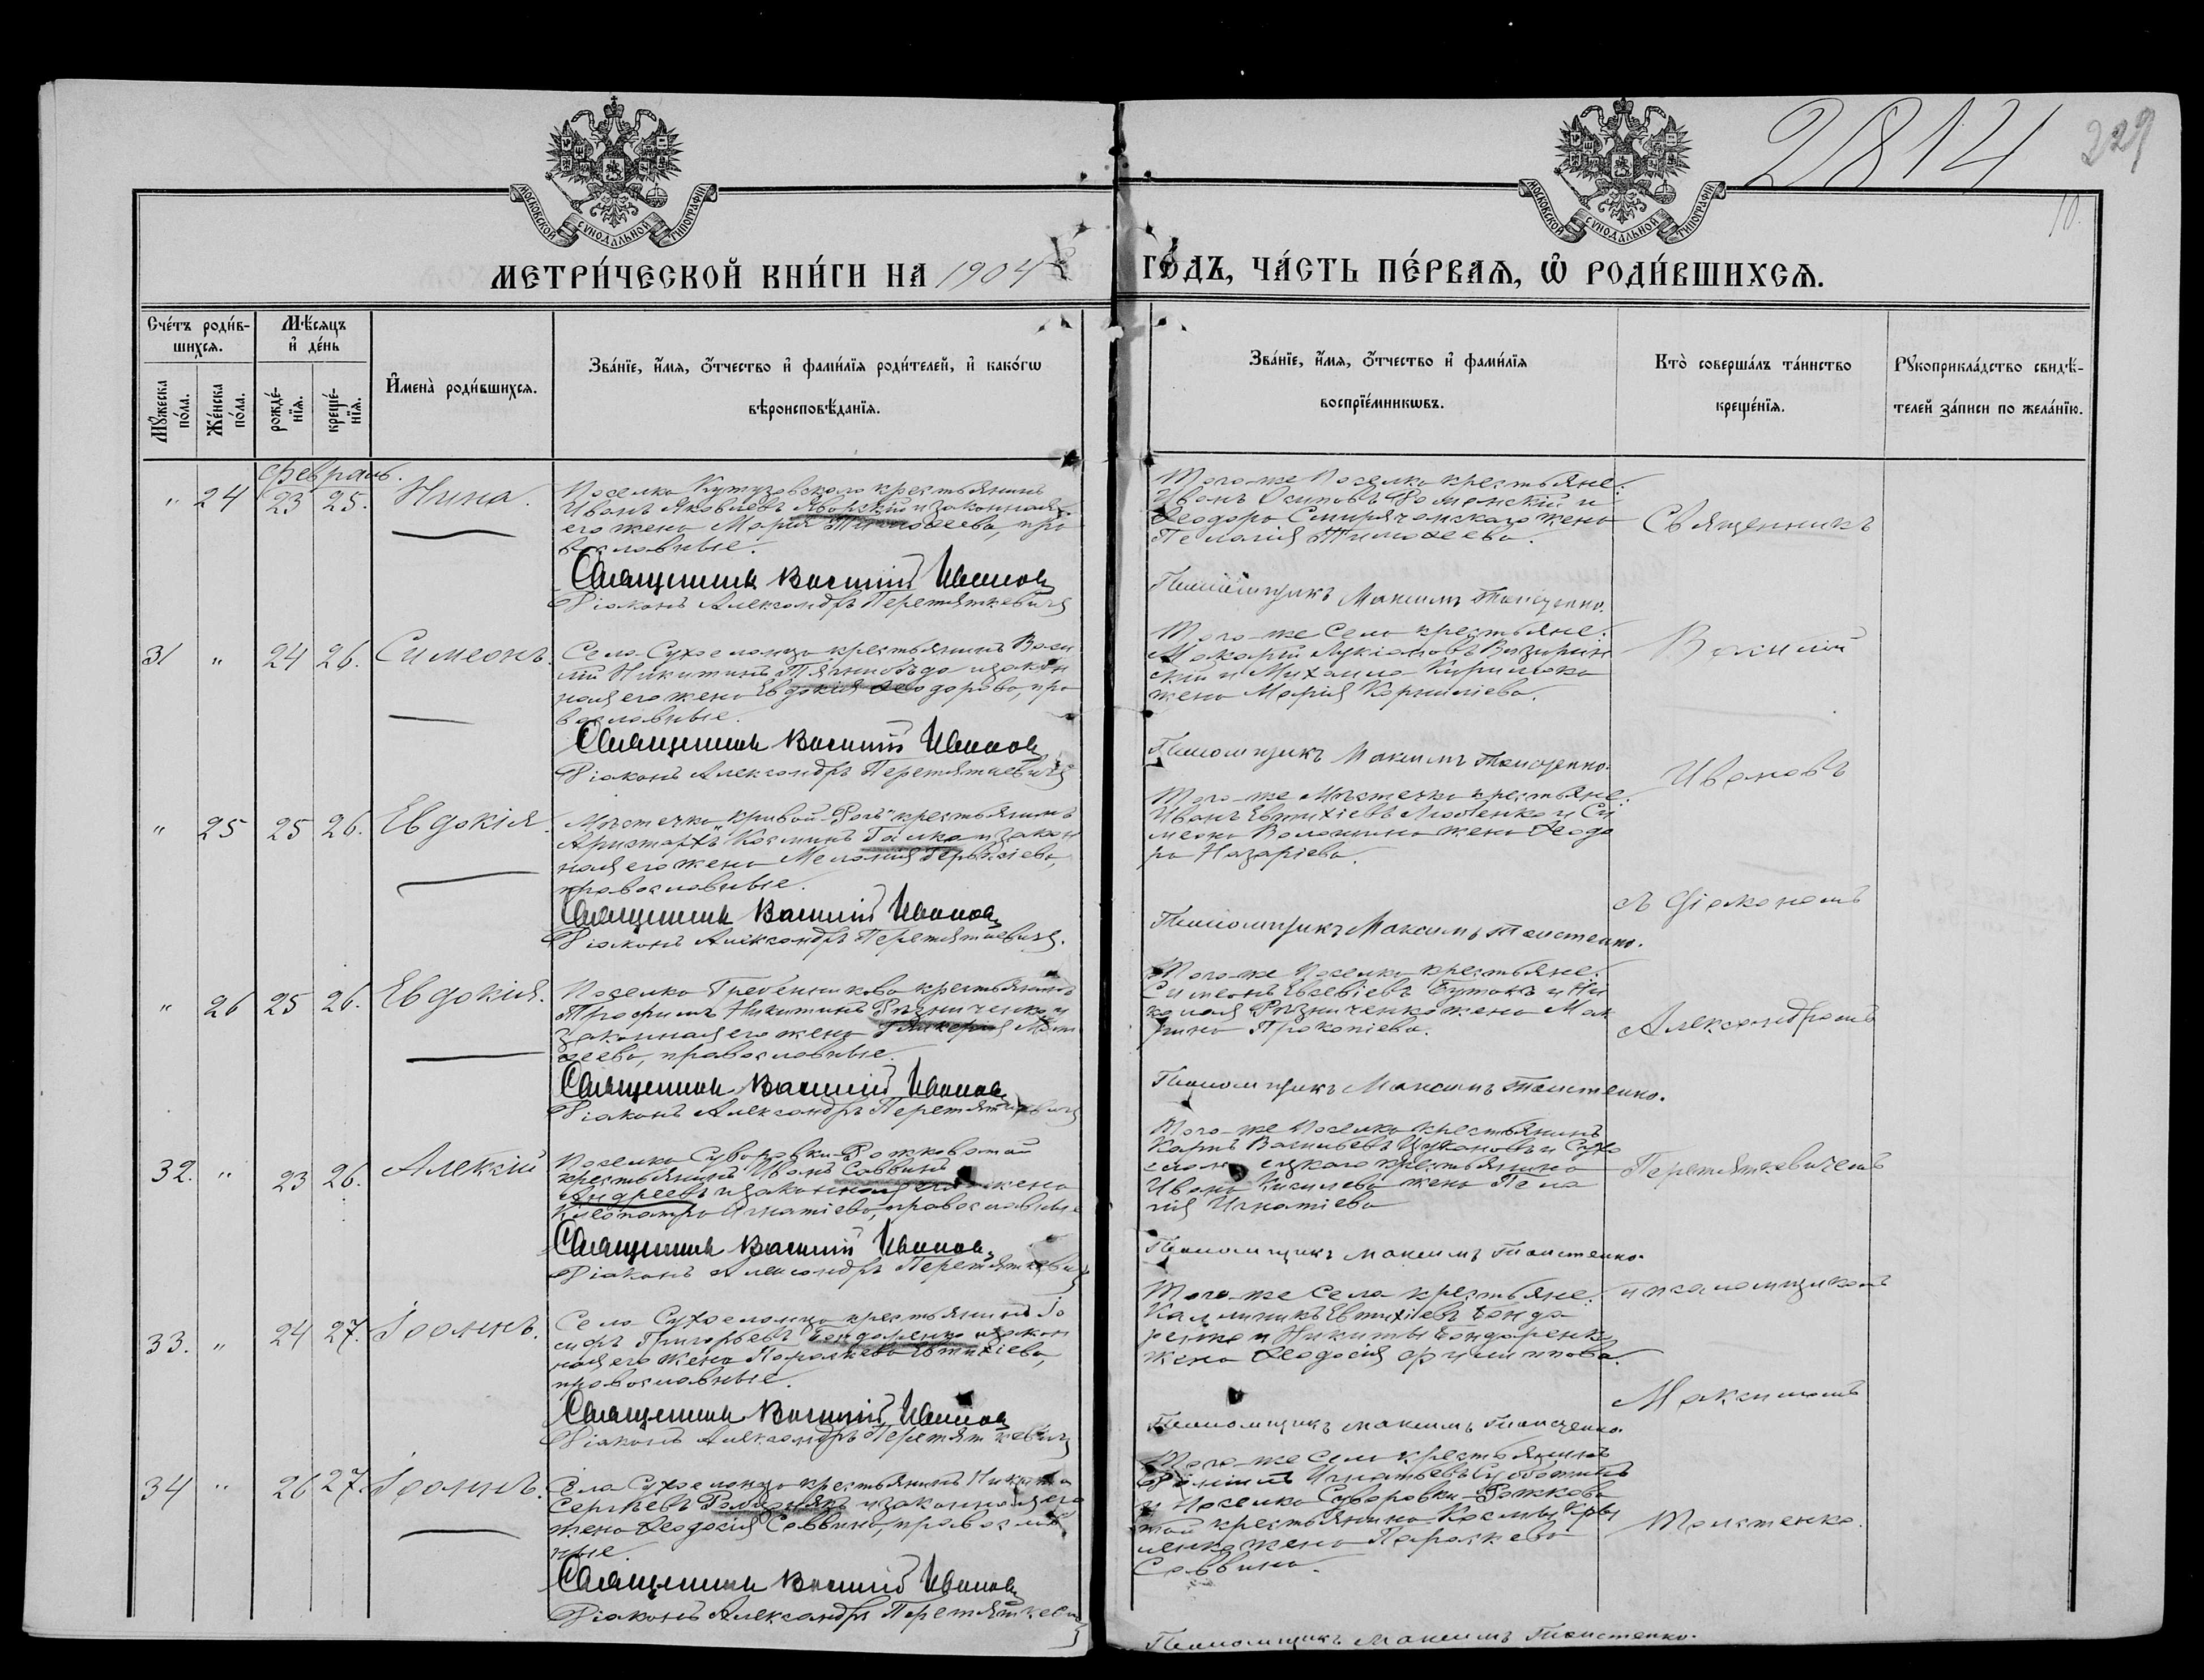 2814
229
10.
МОСКОВСКОЙ СѴНОДАЛЬНОЙ ТИПОГРАФІИ
МОСКОВСКОЙ СѴНОДАЛЬНОЙ ТИПОГРАФІИ
МЕТРИ́ЧЕСКОЙ КНИ́ГИ НА 1904й
ГО́ДЪ, ЧА́СТЬ ПЕ́РВАѦ, Ѽ РОДИ́ВШИХСѦ.
Сче́тъ роди́в-
шихсѧ.
Мꙋ́жеска
по́ла.
Же́нска
по́ла.
Мѣ́сѧцъ
и҆ де́нь
рожде́-
нїѧ.
креще́-
нїѧ.
И҆мена̀ роди́вшихсѧ.
Зва́нїе, и҆́мѧ, ѻ҆́тчество и҆ фами́лїѧ роди́телей, и҆ како́гѡ
вѣроисповѣ́данїѧ.
Зва́нїе, и҆́мѧ, ѻ҆́тчество и҆ фами́лїѧ
воспрїе́мникѡвъ.
Кто̀ соверша́лъ та́инство
креще́нїѧ.
Рꙋкоприкла́дство свидѣ́-
телей за́писи по жела́нїю.
Февраль.
" 24 23 25. Нина.
Поселка Кутузовскаго крестьянинъ
Иванъ Яковлевъ Яворскій и законная
его жена Марія Тимоѳеева, пра
вославные.
Священникъ Василій Ивановъ
Діаконъ Александръ Перетяткевичъ
Того-же Поселка крестьяне:
Иванъ Осиповъ и
Ѳеодора жена
Пелагія Тимоѳеева.
Псаломщикъ Максимъ Толстенко.
31 " 24 26. Симеонъ.
Села Сухоеланца крестьянинъ Васи
лій Никитинъ и закон
ная его жена Евдокія Ѳеодорова, пра
вославные.
Священникъ Василій Ивановъ
Діаконъ Александръ Перетяткевичъ
Того-же Села крестьяне:
Макарій Лукіановъ
скій и Михаила Кирилюка
жена Марія Корниліева.
Псаломщикъ Максимъ Толстенко.
" 25 25 26. Евдокія.
Мѣстечка „Кривой-Рогъ" крестьянинъ
Аристархъ Косминъ Галка и закон
ная его жена Меланія Гервасіева,
православные.
Священникъ Василій Ивановъ
Діаконъ Александръ Перетяткевичъ.
Того-же Мѣстечка крестьяне:
Иванъ Евтихіевъ и Си
меона Волошина жена Ѳеодо
ра Назаріева.
Псаломщикъ Максимъ Толстенко.
" 26 25 26. Евдокія.
Поселка Гребенникова крестьянинъ
Трофимъ Никитинъ Рѣзниченко и
законная его жена Гликерія Мат
ѳеева, православные.
Священникъ Василій Ивановъ
Діаконъ Александръ Перетяткевичъ
Того-же Поселка крестьяне:
Симеонъ Евсевіевъ Бутокъ и Ни
колая Рѣзниченко жена Ма
рина Прокопіева.
Псаломщикъ Максимъ Толстенко.
32. " 23 26. Алексій
Поселка Суворовки-Рожковатой
крестьянинъ Иванъ Саввинъ
Андреевъ и законная его жена
Клеопатра Игнатіева, православные
Священникъ Василій Ивановъ
Діаконъ Александръ Перетяткевичъ
Того-же Поселка крестьянинъ
Карпъ Васильевъ и Сухо
крестьянина
Ивана Киселева жена Пела
гія Игнатіева
Псаломщикъ Максимъ Толстенко.
33. " 24 27. Іоаннъ.
Села Сухоеланца крестьянинъ Іо
сифъ Григорьевъ Бондаренко и закон
ная его жена Параскева Евтихіева,
православные.
Священникъ Василій Ивановъ
Діаконъ Александръ Перетяткевичъ
Того-же Села крестьяне:
Каллиникъ Евтихіевъ Бонда
ренко и Никиты Бондаренка
жена Ѳеодосія Филиппова.
Псаломщикъ Максимъ Толстенко.
34 " 26 27. Іоаннъ.
Села Сухоеланца крестьянинъ Никита
Сергѣевъ и законная его
жена Ѳеодосія Саввина, православ
ные.
Священникъ Василій Ивановъ
Діаконъ Александръ Перетяткевичъ
Того-же Села крестьянинъ
Игнатьевъ Субботинъ
и Поселка Суворовки-Рожкова
той крестьянина Космы
жена Параскева
Саввина.
Псаломщикъ Максимъ Толстенко.
Священникъ
Василій
Ивановъ
съ Діакономъ
Александромъ
Перетяткевичемъ
и псаломщикомъ
Максимомъ
Толстенко.